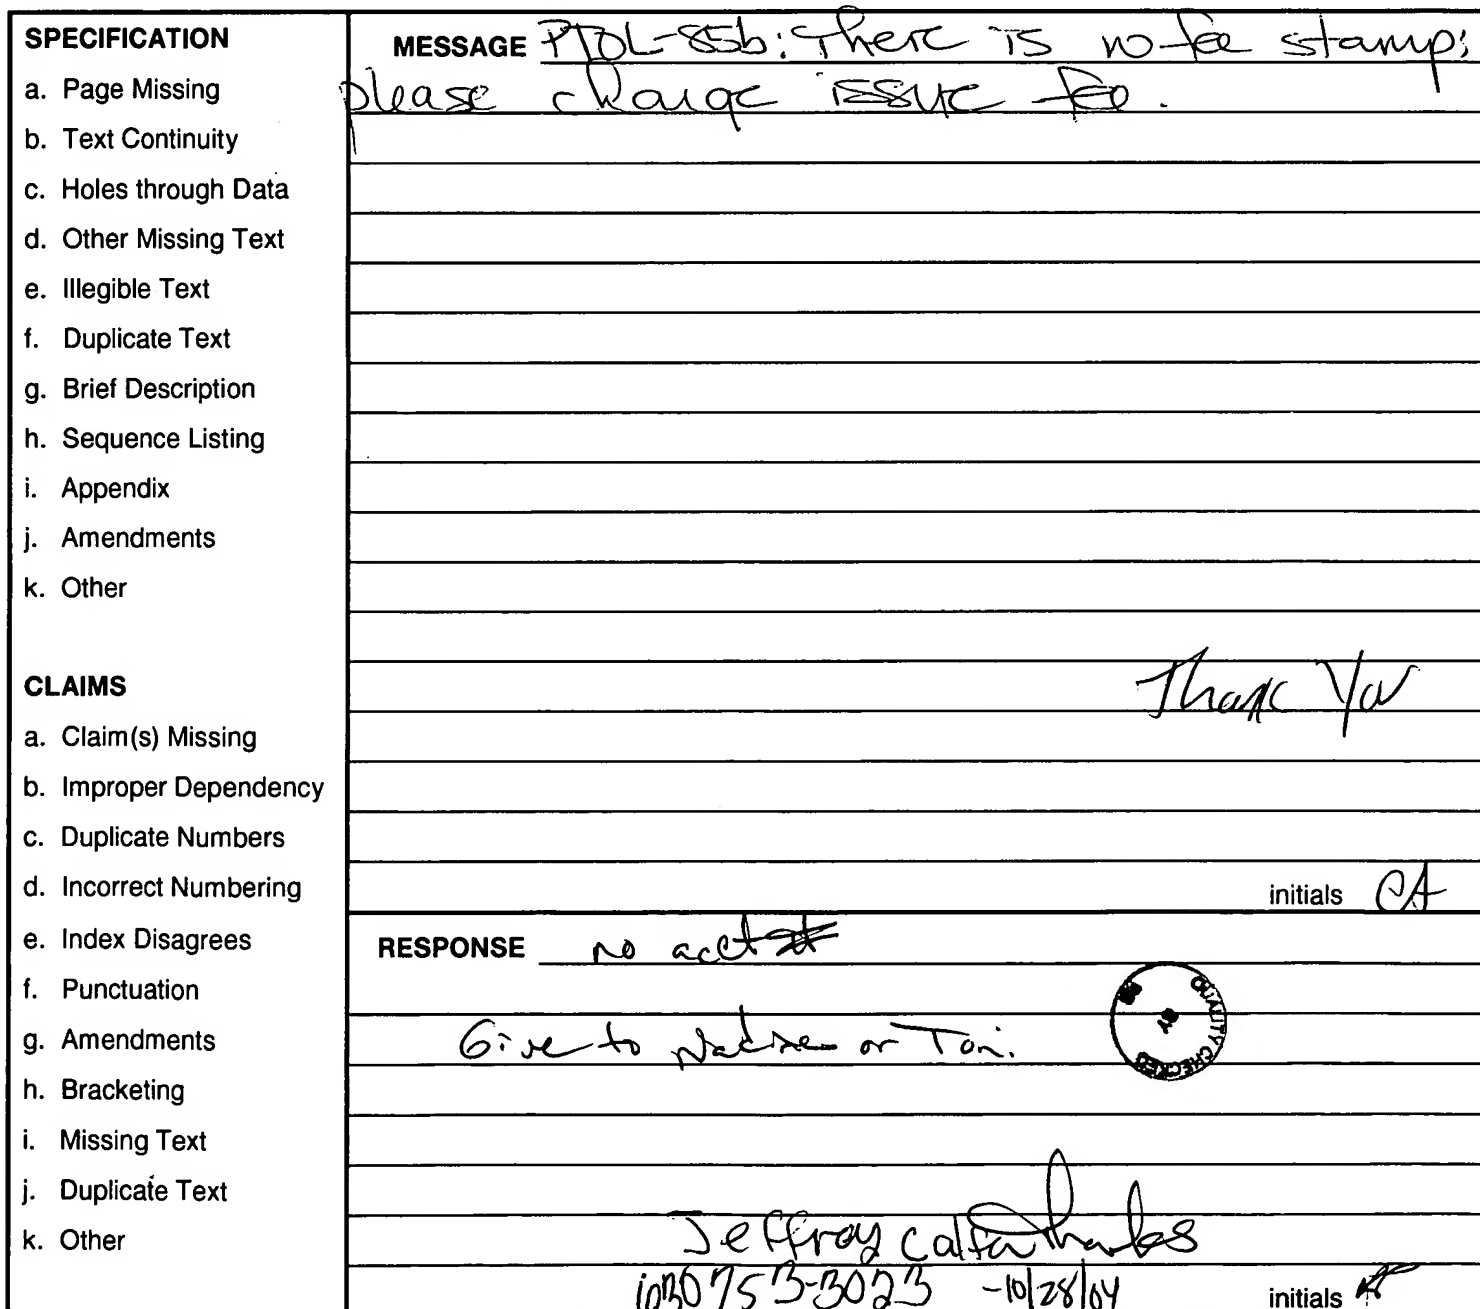 SPECIFICATION
a. Page Missing
b. Text Continuity
c. Holes through Data
d. Other Missing Text
e. Illegible Text
f. Duplicate Text
g. Brief Description
h. Sequence Listing
i. Appendix
j. Amendments
k. Other
CLAIMS
a. Claim(s) Missing
b. Improper Dependency
c. Duplicate Numbers
d. Incorrect Numbering
e. Index Disagrees
f. Punctuation
g. Amendments
h. Bracketing
i. Missing Text
j. Duplicate Text
k. Other
MESSAGE PTOL-85b: There is no fee stamp;
please charge issue fee.
Thank You
initials CA
RESPONSE no acct
Give to or Tori.
QUALITY CHECKED
Jeffrey
753-3023 -10/28/04
initials